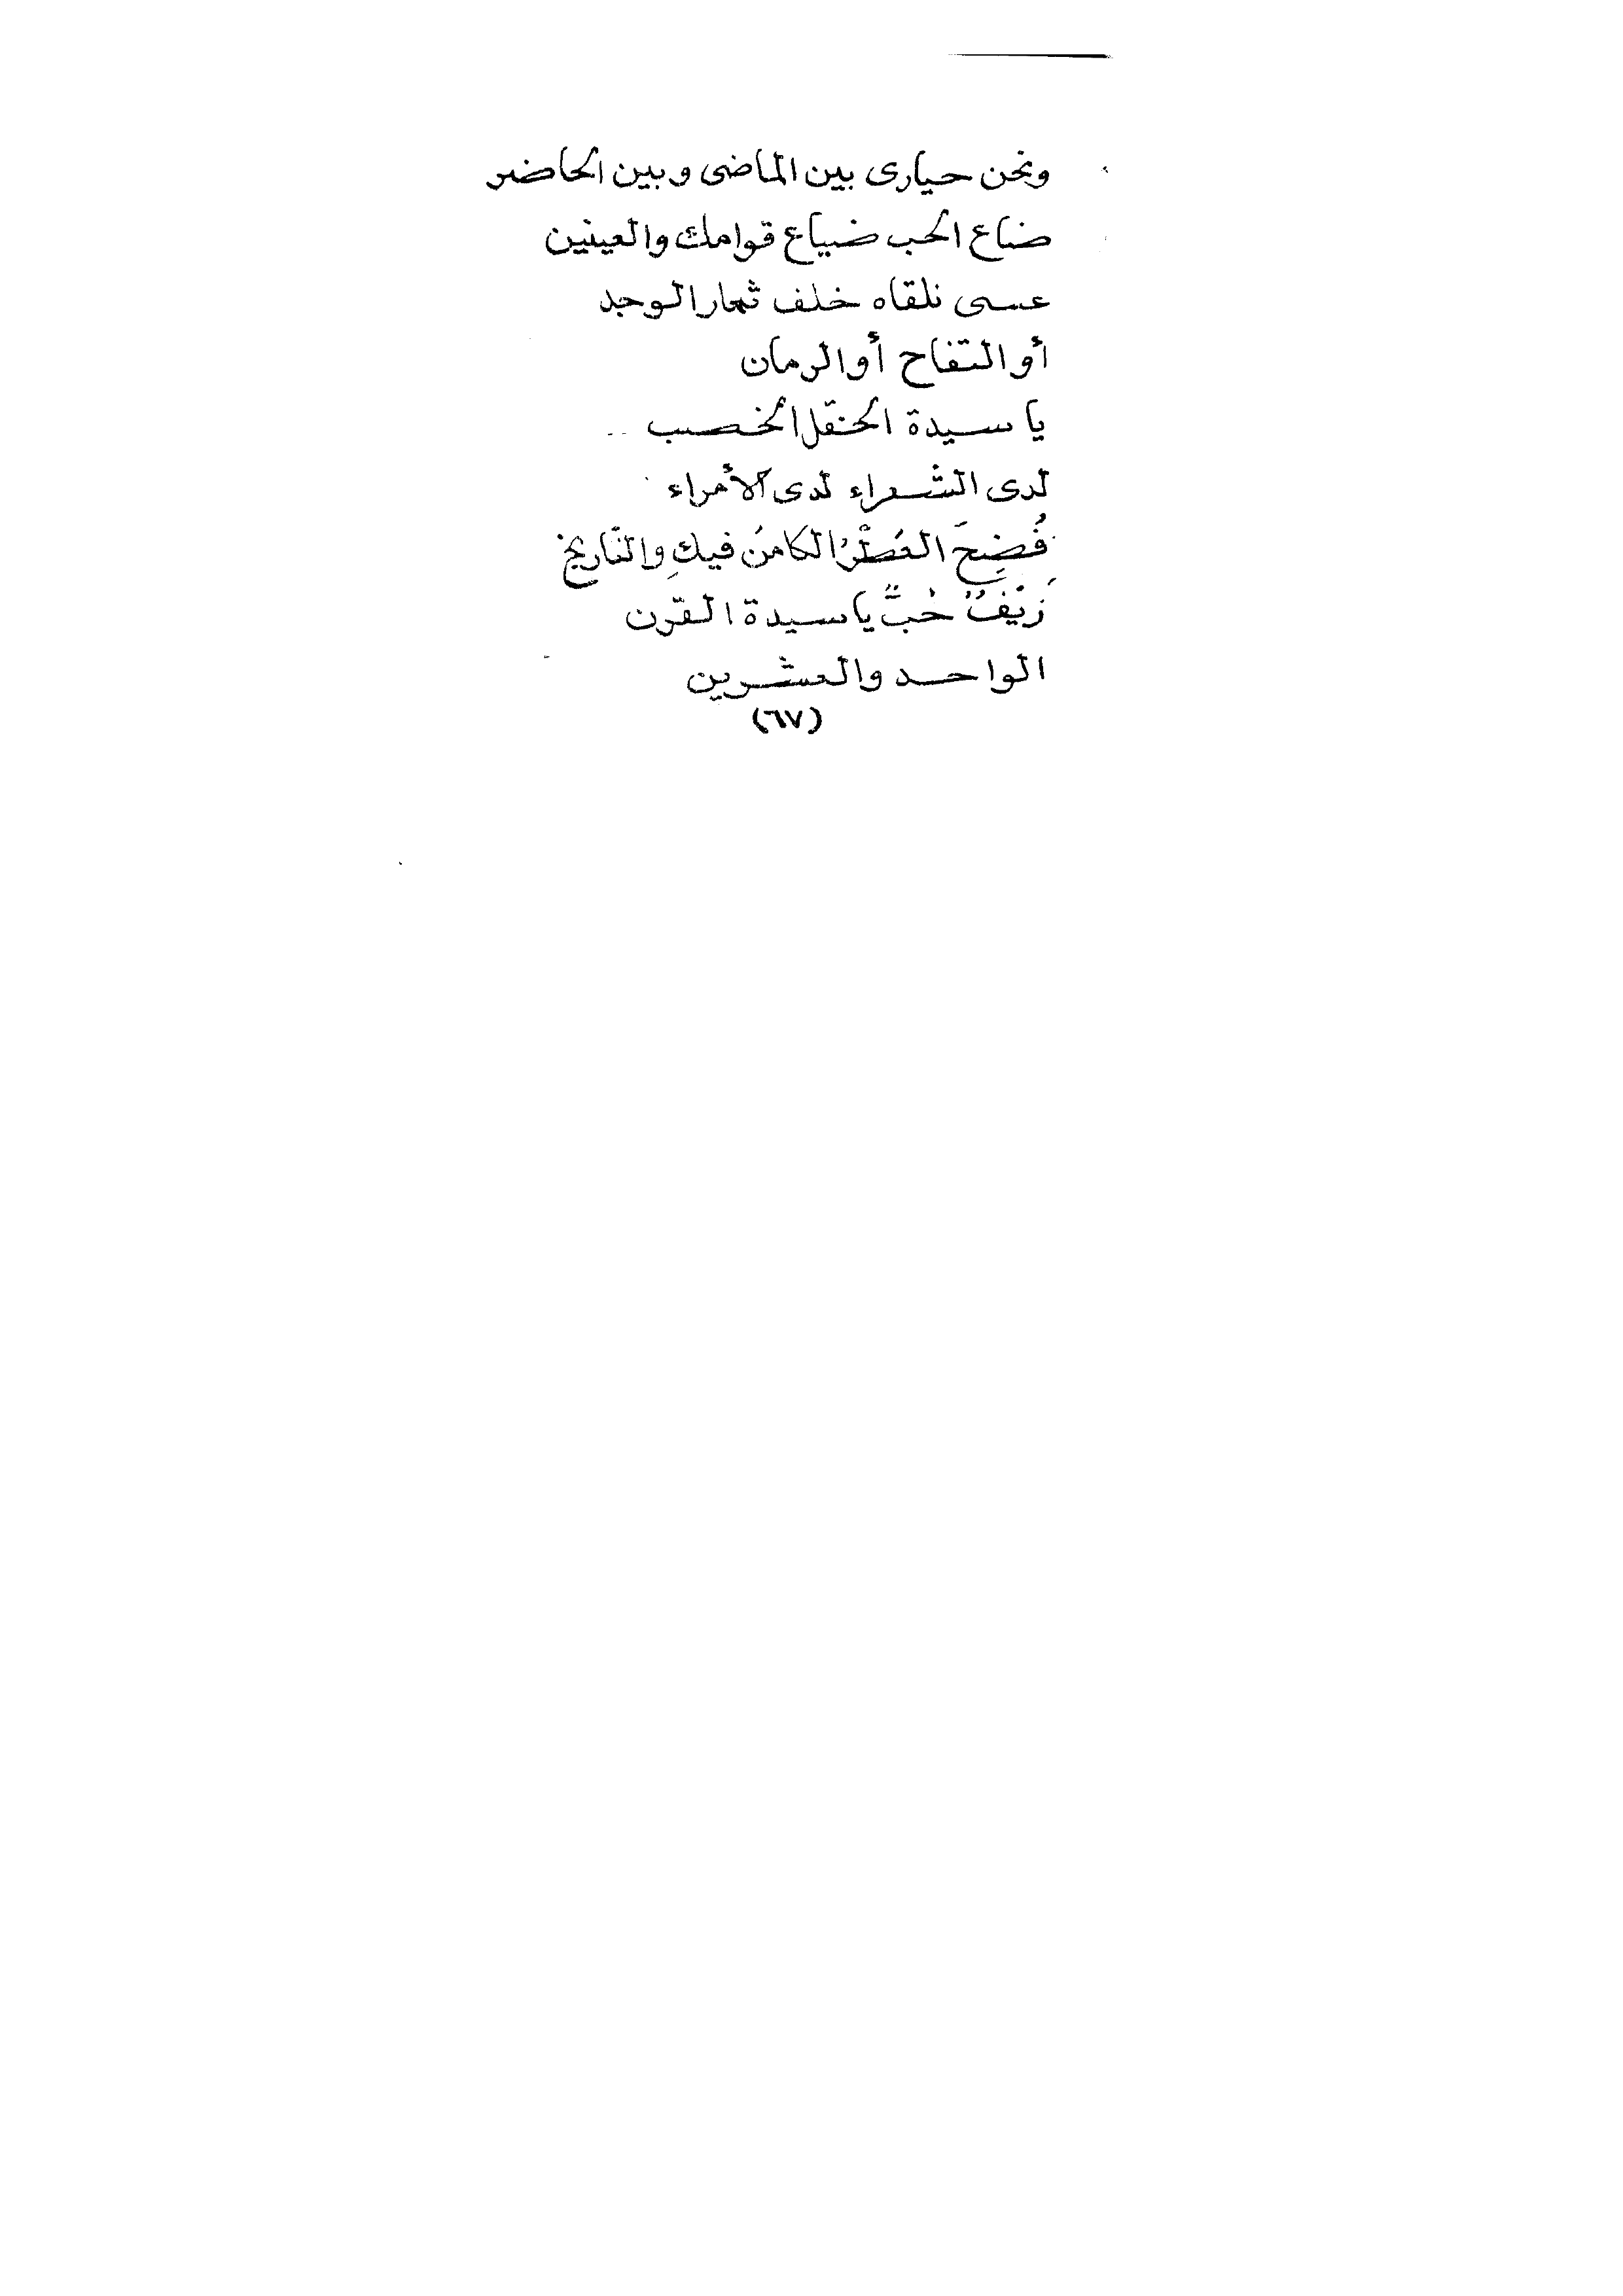 ونحن حيارى بين الماضى وبين الحاضر
ضاع الحب ضياع قوامك والعينين
عسى نلقاه خلف ثمار الوجد
أو التفاح أو الرمان
يا سيدة الحنقل الخصب ..
لدى الشعراء لدى الأمراء
فُضِحَ العُطْرُ الكامنُ فيكِ والتّاريخ
زَيْفٌ حُبٌّ يا سيدة القرن
الواحد والعشرين
(٦٧)